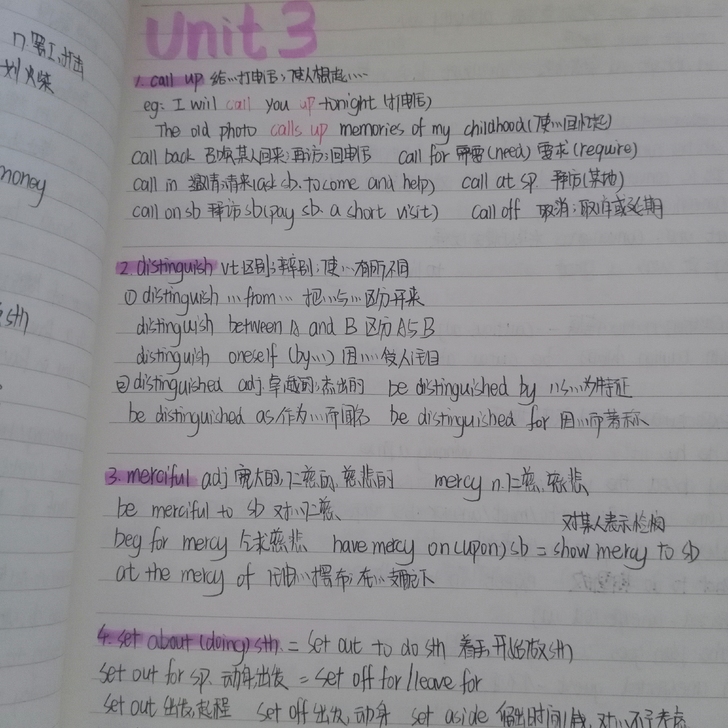 划火柴
money
sth
Unit 3
1. call up 给…打电话;使人想起…
eg: I will call you up tonight (打电话)
The old photo calls up memories of my childhood (使…回忆起)
call back 召唤某人回来;再访;回电话 call for 需要(need) 要求(require)
call in 邀请;请来(ask sb. to come and help) call at sp. 拜访(某地)
call on sb 拜访sb(pay sb. a short visit) call off 取消;取消或延期
2. distinguish vt 区别;辨别;使…有所不同
① distinguish … from … 把…与…区分开来
distinguish between A and B 区分A与B
distinguish oneself (by…) 因…使人注目
② distinguished adj. 卓越的;杰出的 be distinguished by 以…为特征
be distinguished as 作为…而闻名 be distinguished for 因…而著称
3. merciful adj 宽大的,仁慈的,慈悲的 mercy n.仁慈,慈悲
be merciful to sb 对…仁慈
对某人表示怜悯
beg for mercy 乞求慈悲 have mercy on(upon) sb = show mercy to sb
at the mercy of 任由…摆布;在…支配下
4. set about (doing) sth. = set out to do sth 着手开始做sth
set out for sp. 动身出发 = set off for/leave for
set out 出发,起程 set off 出发,动身 set aside 留出时间/钱,对…不予考虑